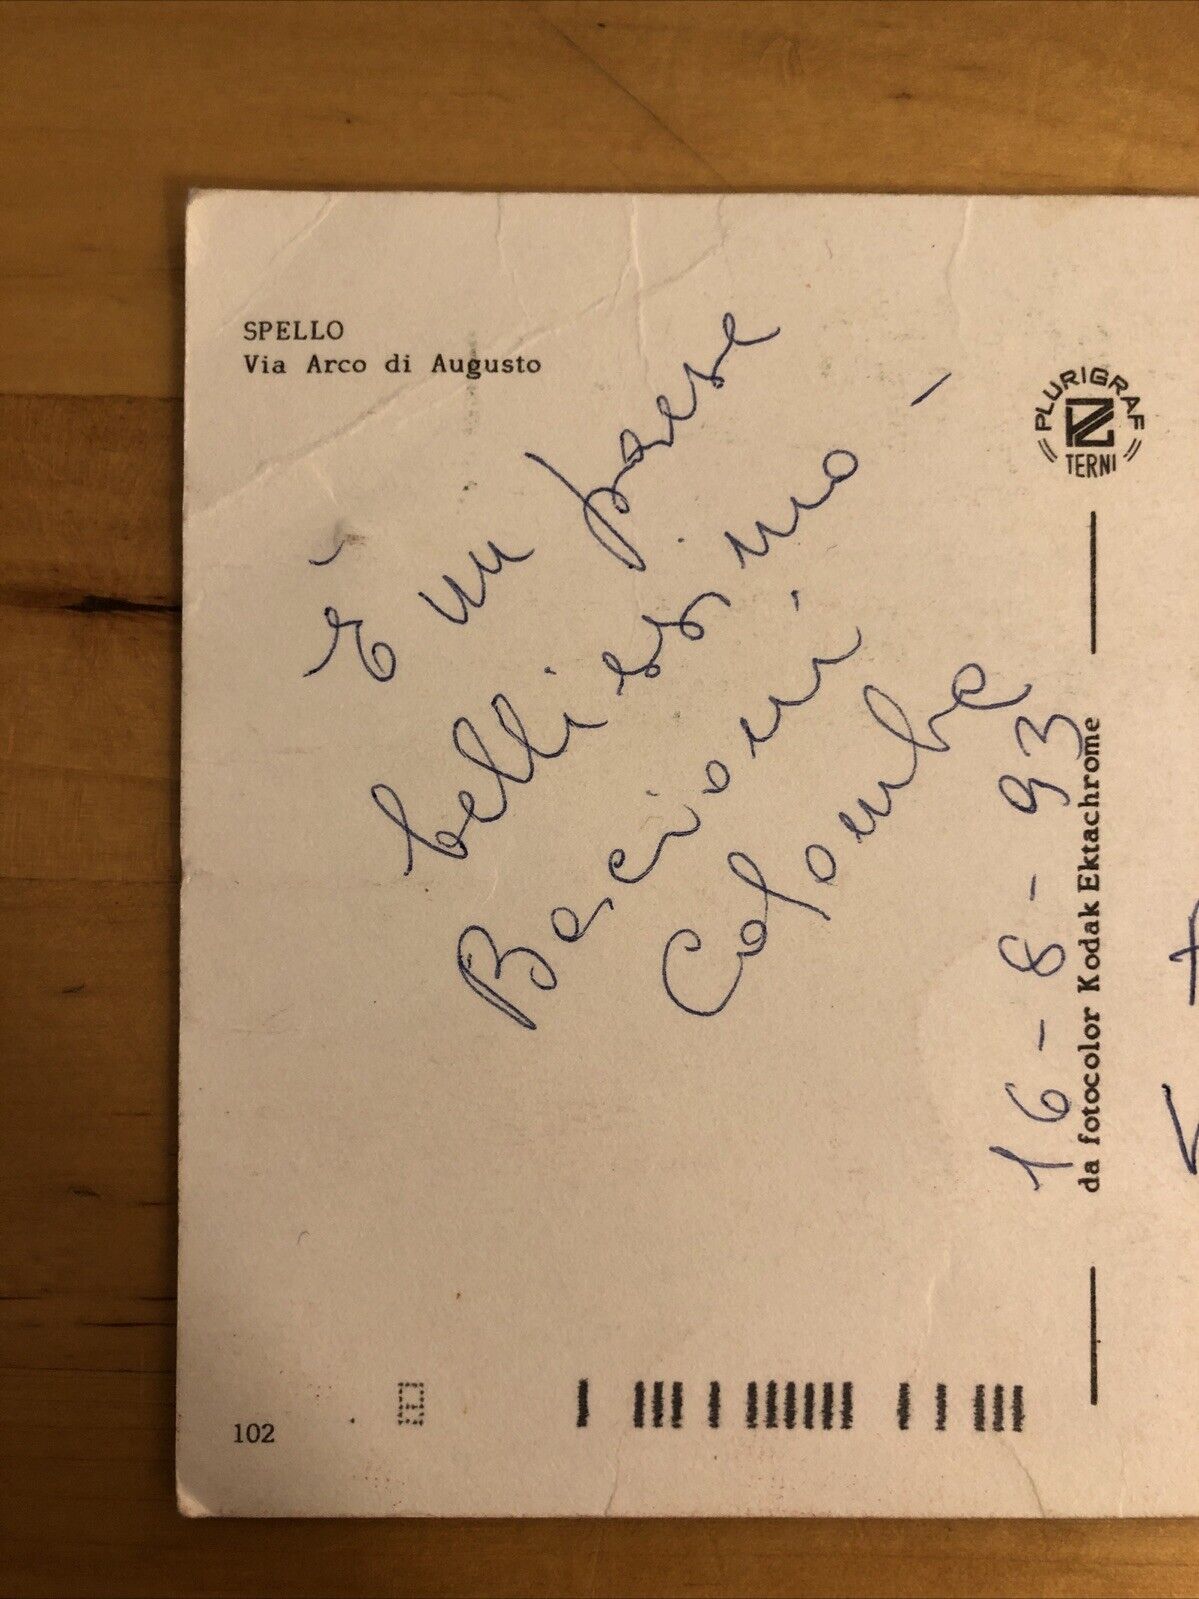 SPELLO
Via Arco di Augusto
È un paese
bellissimo -
Bacioni
Colomba
16-8-93
PLURIGRAF
TERNI
da fotocolor Kodak Ektachrome
102